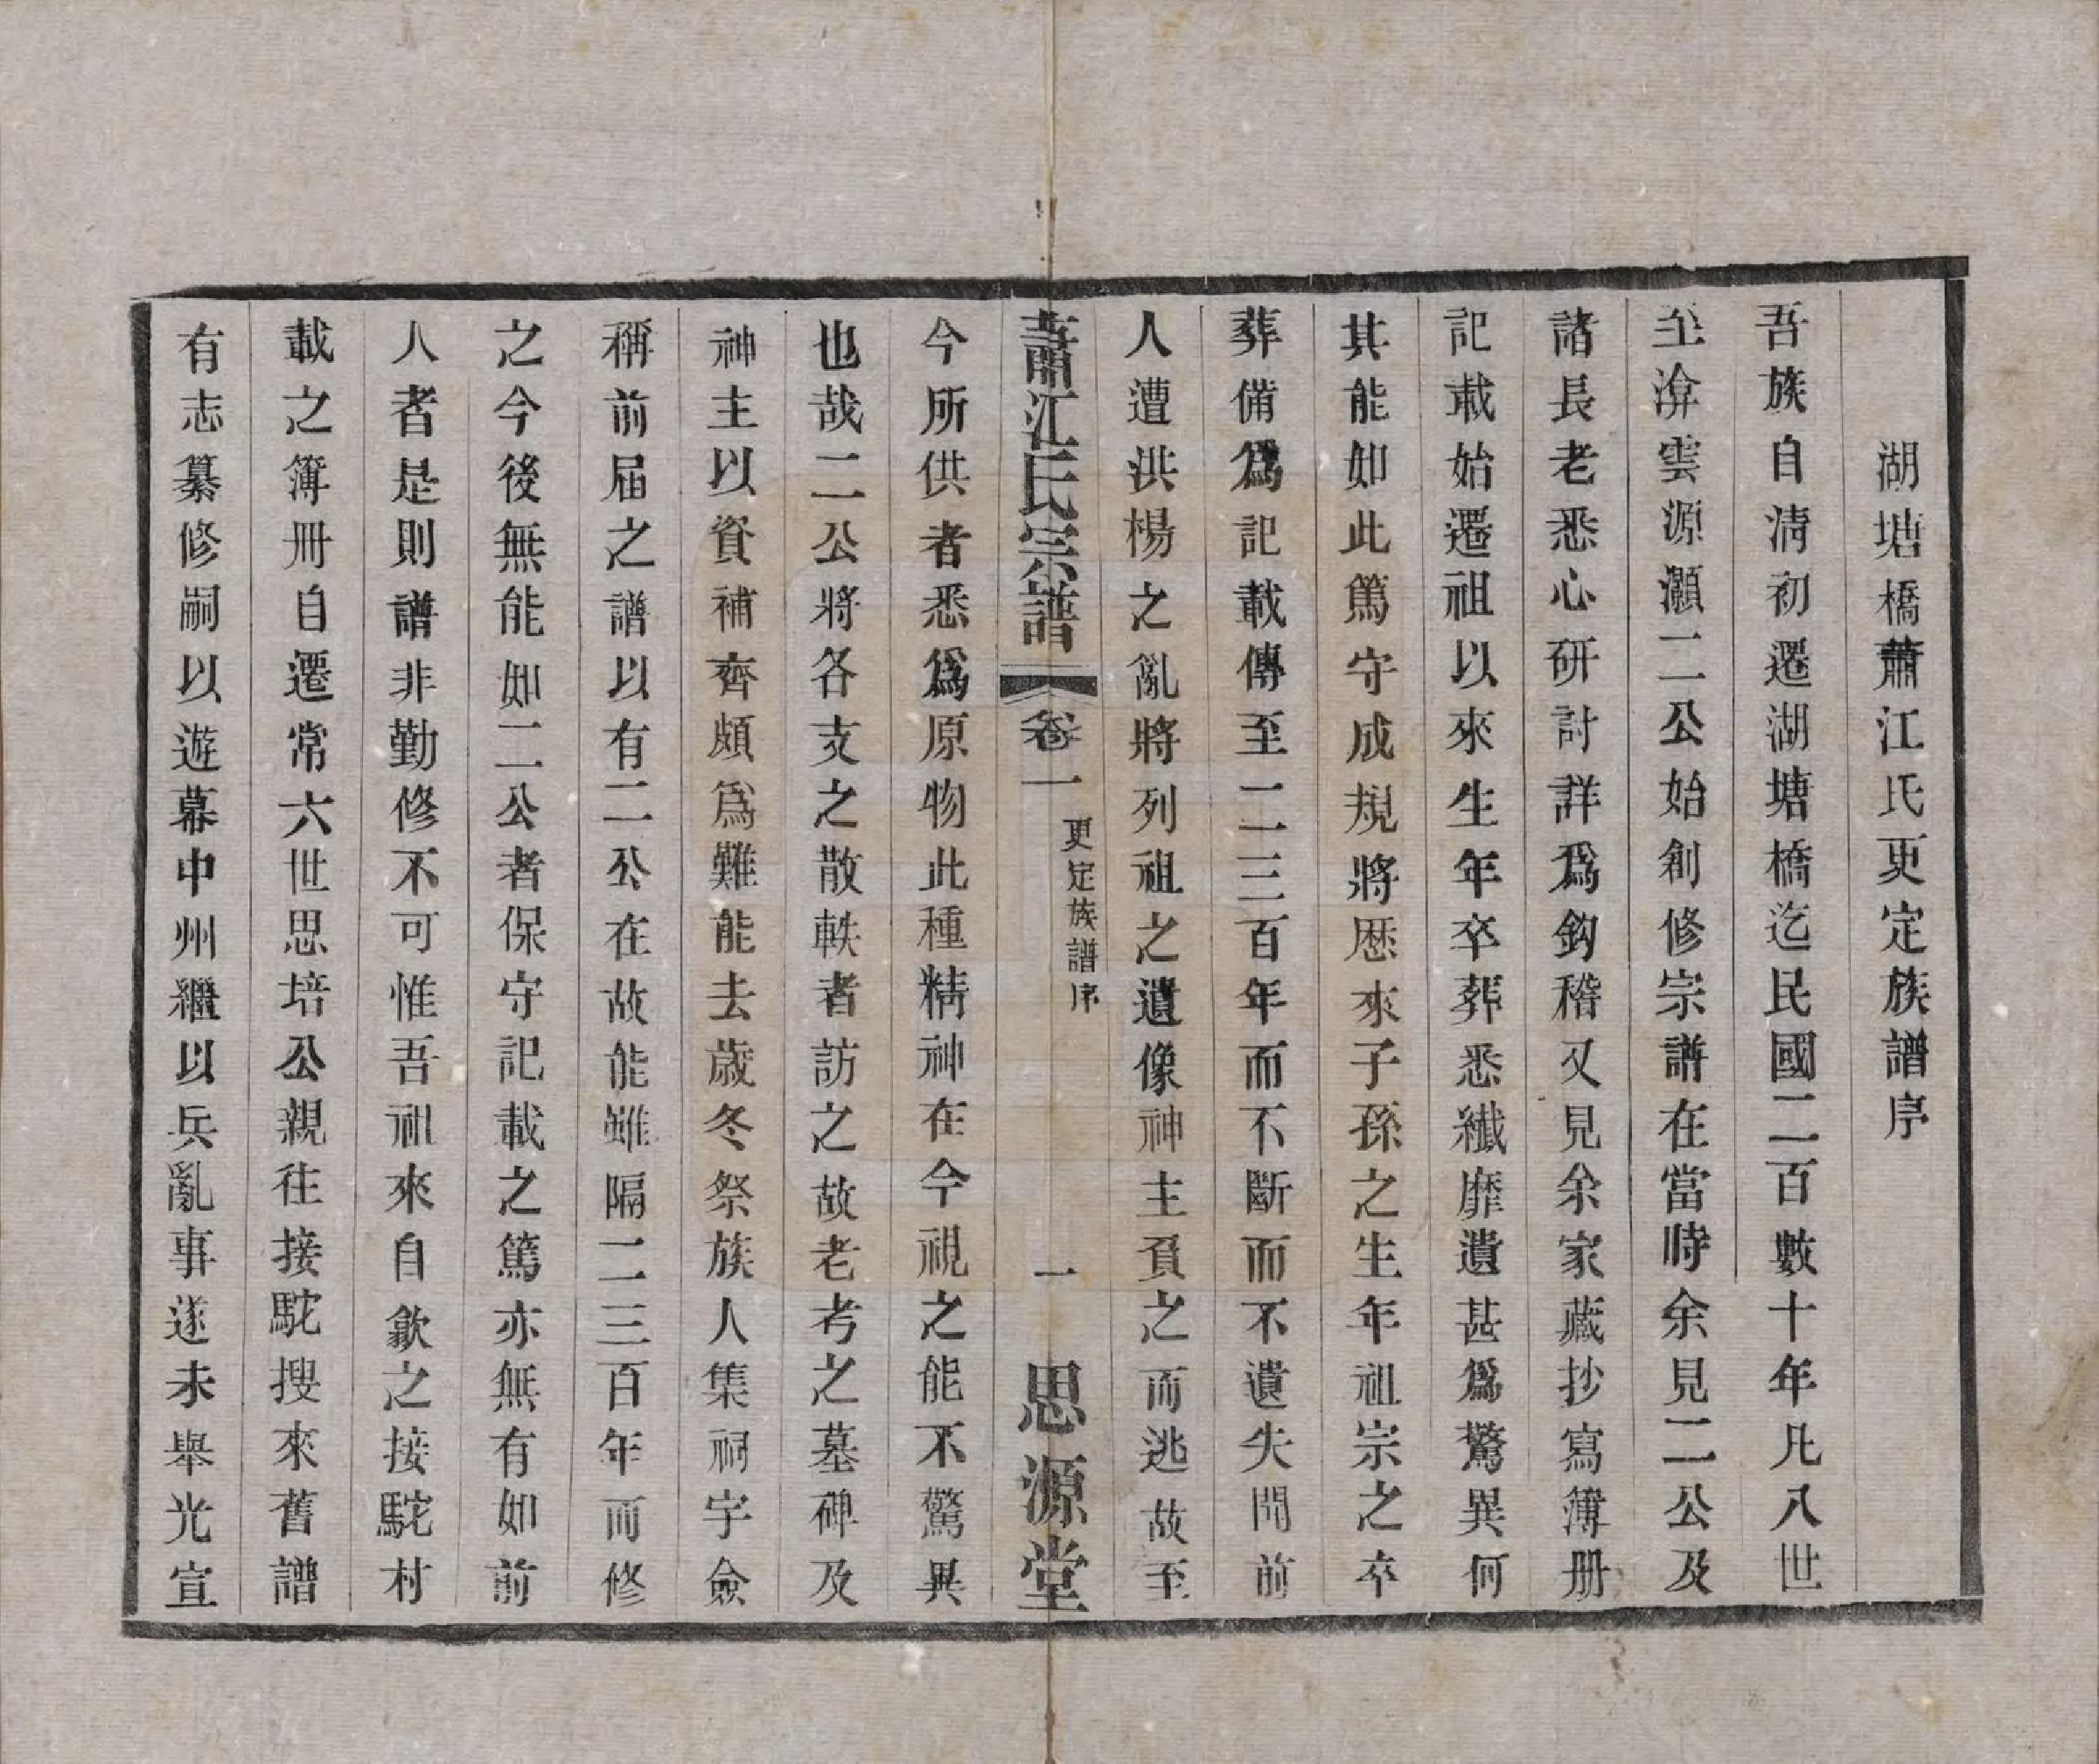 湖塘橋蕭江氏更定族譜序
吾族自淸初遷湖塘橋迄民國二百數十年凡八世
至渰雲源灝二公始創修宗譜在當時余見二公及
諸長老悉心研討詳爲鈎稽又見余家藏抄寫簿册
記載始遷祖以來生年卒葬悉纎靡遺甚爲驚異何
其能如此篤守成規將歷來子孫之生年祖宗之卒
葬備爲記載傳至二三百年而不斷而不遺失聞前
人遭洪楊之亂將列祖之遺像神主負之而逃故至
蕭江氏宗譜
卷一
更定族譜序
一
思源堂
今所供者悉爲原物此種精神在今視之能不驚異
也哉二公將各支之散軼者訪之故老考之墓碑及
神主以資補齊頗爲難能去歲冬祭族人集祠宇僉
稱前屆之譜以有二公在故能雖隔二三百年而修
之今後無能如二公者保守記載之篤亦無有如前
人者是則譜非勤修不可惟吾祖來自歙之接駝村
載之簿冊自遷常六世思培公親往接駝搜來舊譜
有志纂修嗣以遊幕中州繼以兵亂事遂未舉光宣